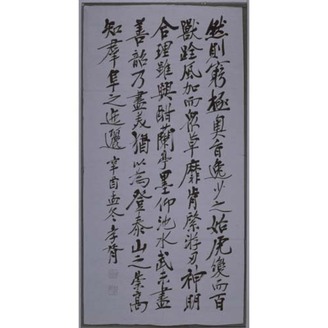 然則窮極奧旨逸少之始虎變而百
獸跧風加而眾草靡肯綮游刃神明
合理雖興酣蘭亭墨仰池水武未盡
善韶乃盡美猶以為登泰山之崇高
知羣阜之迤邐辛酉孟冬